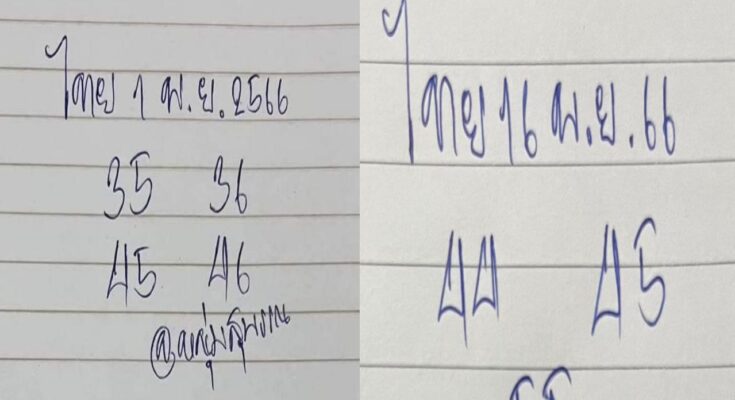 ไทย 1 พ.ย. 2566
35 36
45 46
ไทย 16 พ.ย. 66
44 45